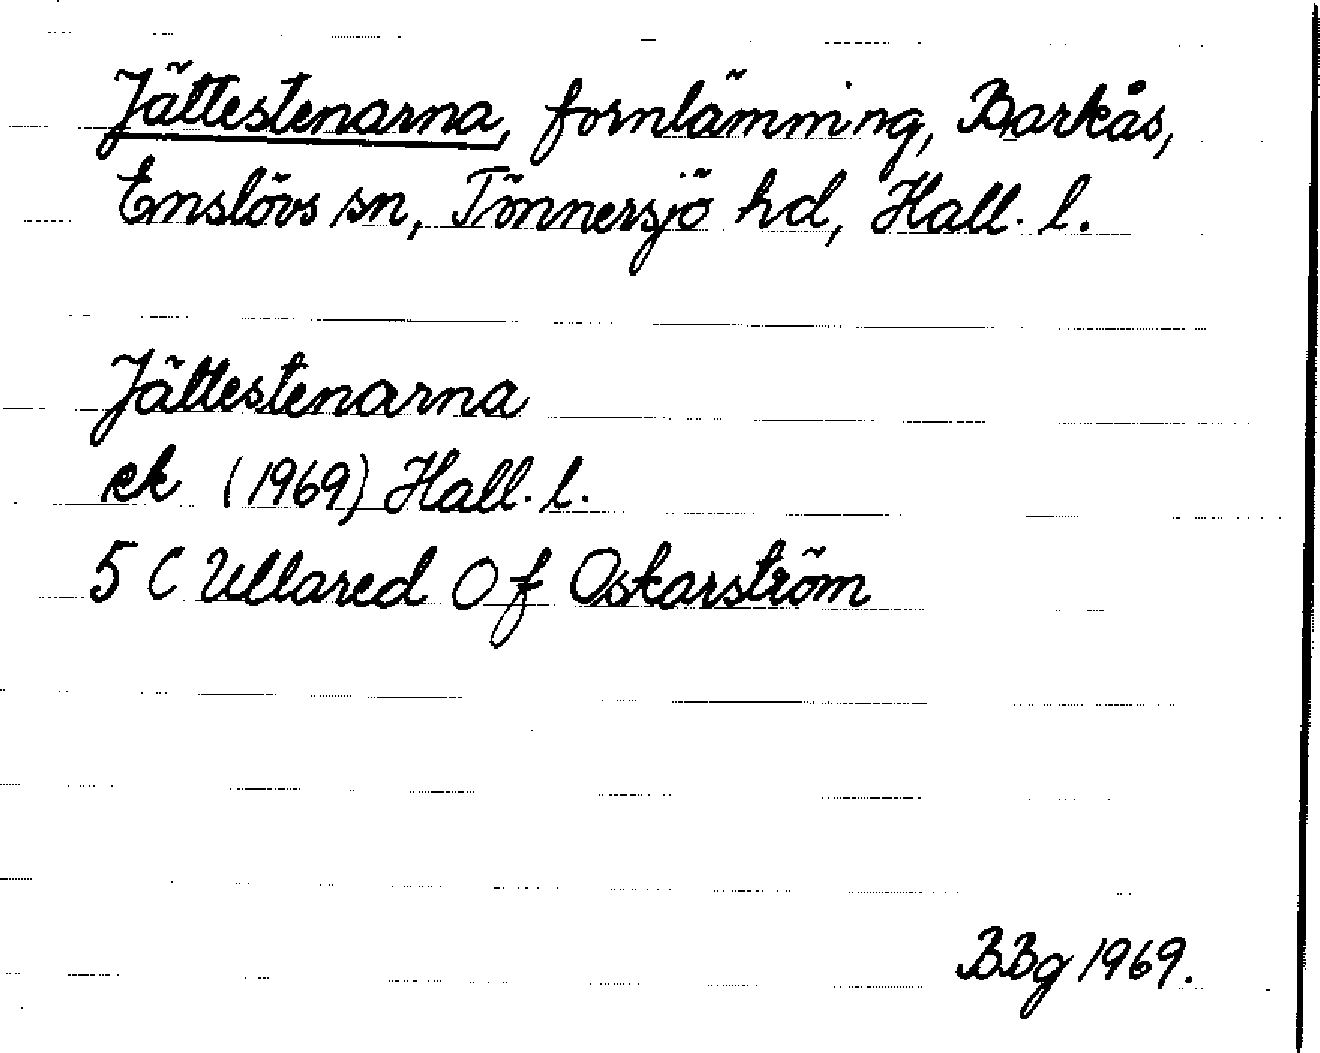 Jättestenarna, fornlämning, Barkås,
Enslövs sn, Tönnersjö hd, Hall. l.
Jättestenarna
ek (1969) Hall. l.
5 C Ullared 0 f Oskarström
BBg 1969.